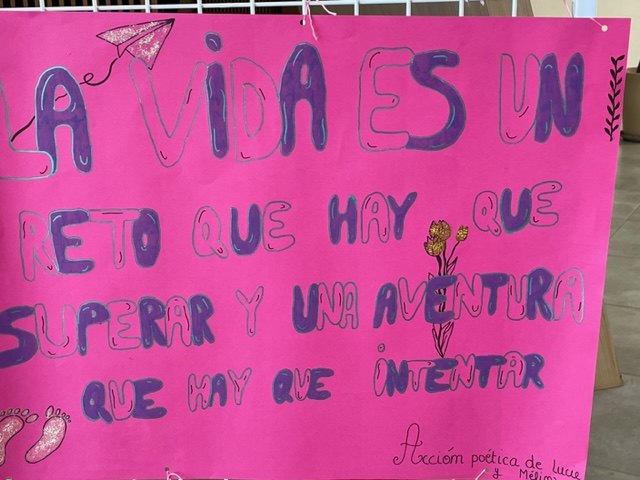 LA ViDA ES UN
RETO QUE HAY QUE
SUPERAR Y UNA AVENTURA
QUE HAY QUE iNTENTAR
Acción poética de Lucie
y